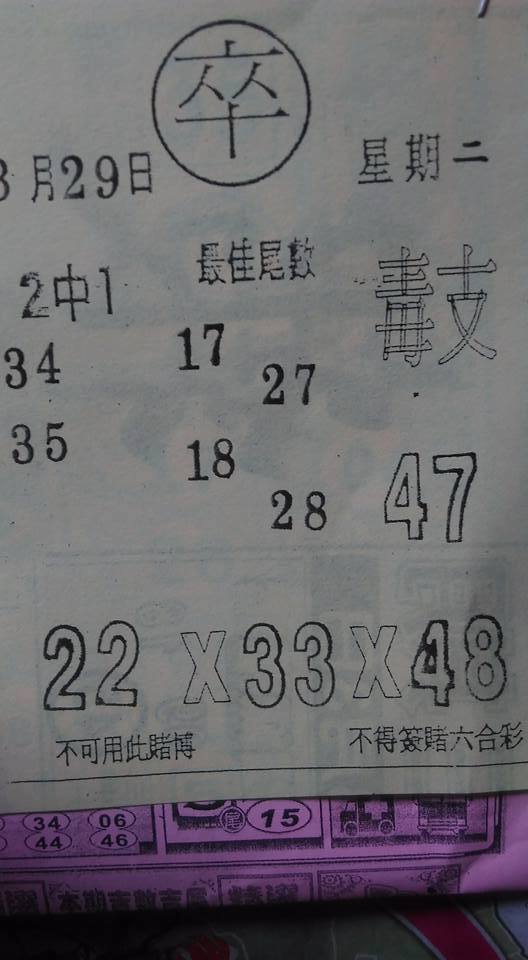 卒
月29日 星期二
2中1 最佳尾數
34 17 27
35 18 28 47
22 X 33 X 48
不可用此賭博 不得簽賭六合彩
34 06 尾 15
44 46
本期吉數吉尾